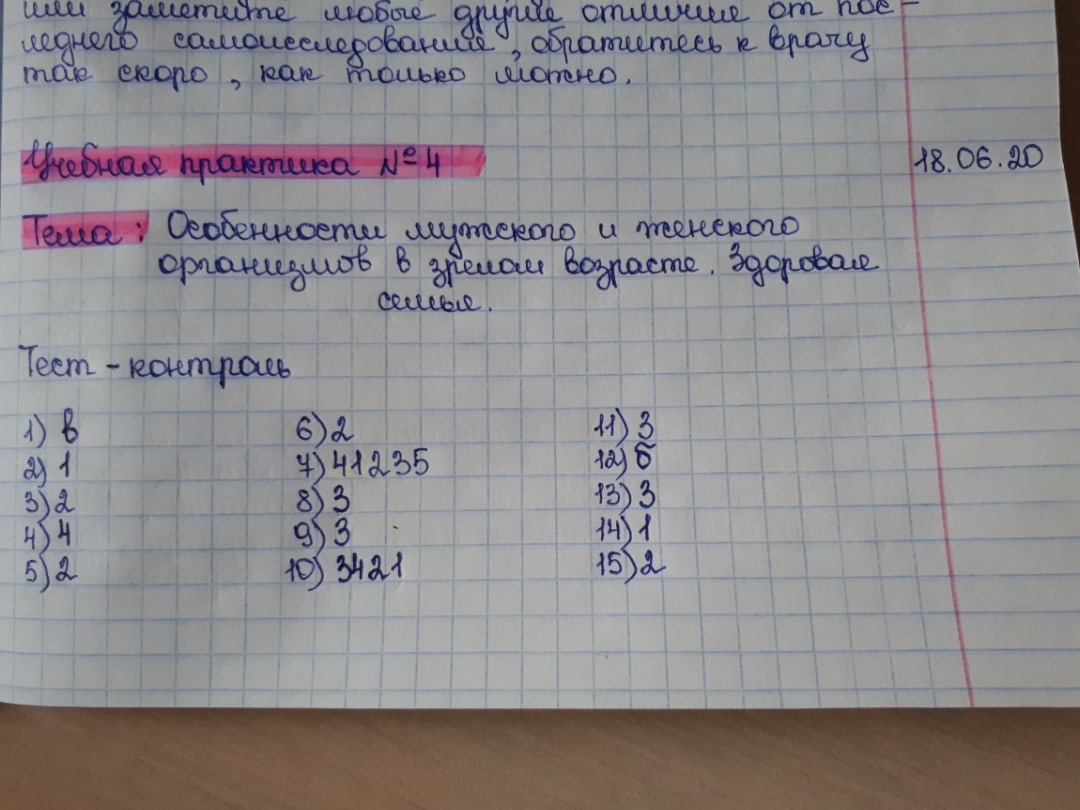 или заметите любые другие отличие от пос-
леднего самоисследование, обратитесь к врачу
так скоро, как только можно.
Учебная практика №4
18.06.20
Тема: Особенности мужского и женского
организмов в зрелом возрасте. Здоровая
семья.
Тест-контроль
1) в
2) 1
3) 2
4) 4
5) 2
6) 2
7) 41235
8) 3
9) 3
10) 3421
11) 3
12) б
13) 3
14) 1
15) 2